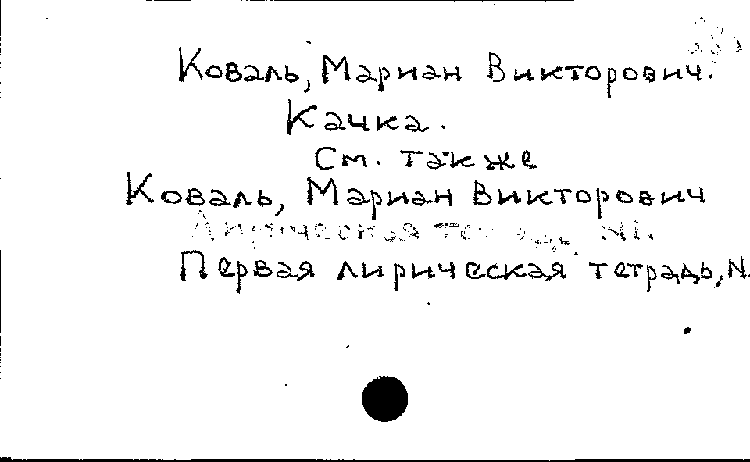 Коваль, Мариан Викторович.
Качка.
См. также
Коваль, Мариан Викторович
Лирическая тетрадь N1.
Первая лирическая тетрадь, N